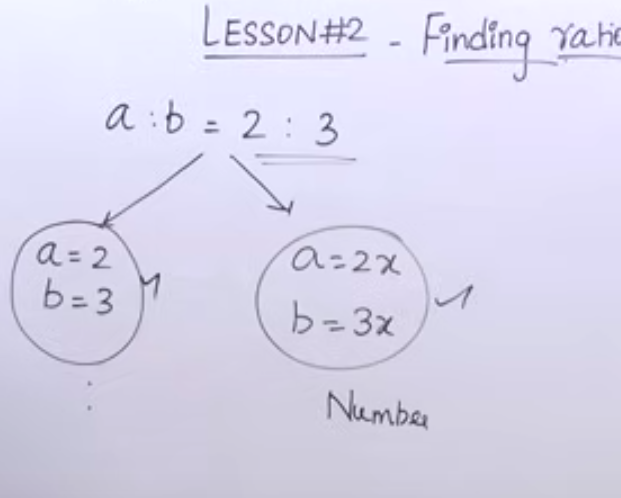 LESSON#2 - Finding ratio
a : b = 2 : 3
a = 2
b = 3
a = 2x
b = 3x
:
Number